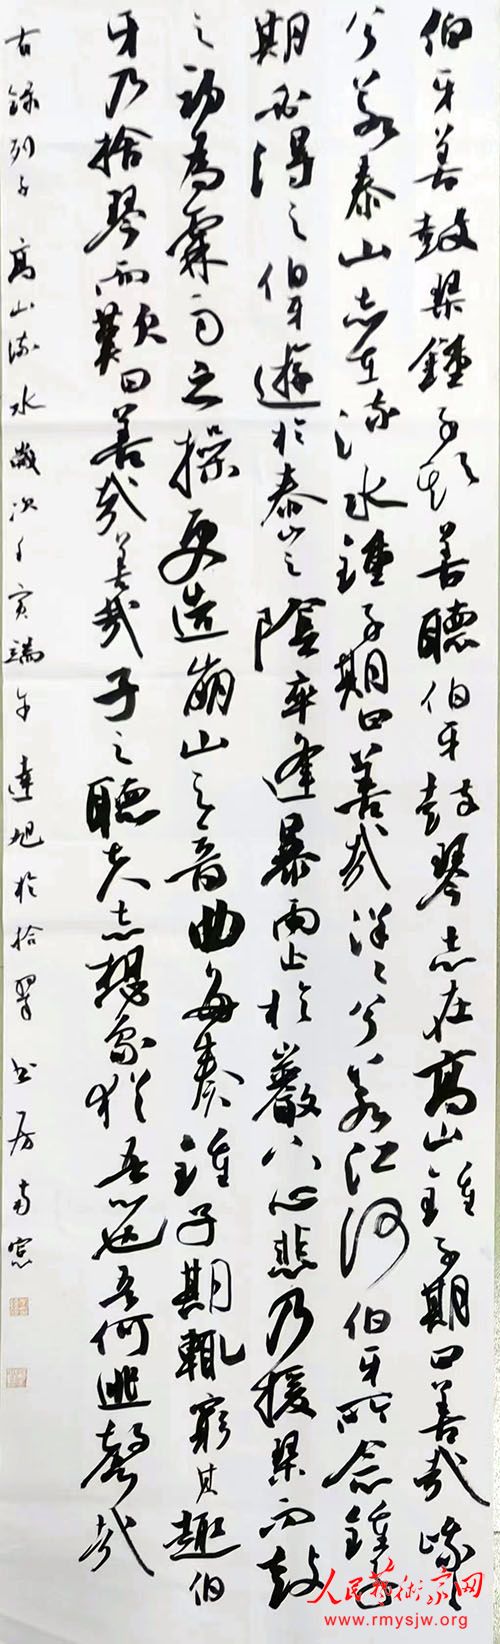 伯牙善鼓琴鍾子期善聽伯牙鼓琴志在高山鍾子期曰善哉峨々
兮若泰山志在流水鍾子期曰善哉洋々兮若江河伯牙所念鍾子
期必得之伯牙遊於泰山之陰卒逢暴雨止於巖下心悲乃援琴而鼓
之初為霖雨之操更造崩山之音曲每奏鍾子期輒窮其趣伯
牙乃捨琴而歎曰善哉善哉子之聽夫志想象猶吾心也吾何逃聲哉
右錄列子高山流水歲次壬寅端午旭於拾翠書房南窗
人民藝術家网
www.rmysjw.org